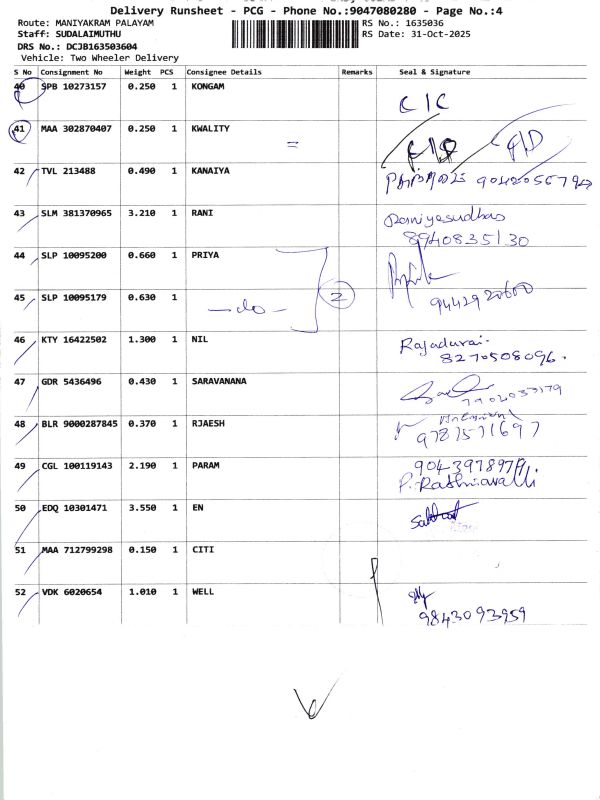 Delivery Runsheet - PCG - Phone No.:9047080280 - Page No.:4
Route: MANIYAKRAM PALAYAM
RS No.: 1635036
Staff: SUDALAIMUTHU
RS Date: 31-Oct-2025
DRS No.: DCJB163503604
Vehicle: Two Wheeler Delivery
S No Consignment No Weight PCS Consignee Details Remarks Seal & Signature
40 SPB 10273157 0.250 1 KONGAM
C/C
41 MAA 302870407 0.250 1 KWALITY
=
42 TVL 213488 0.490 1 KANAIYA
43 SLM 381370965 3.210 1 RANI
8940835130
44 SLP 10095200 0.660 1 PRIYA
45 SLP 10095179 0.630 1
-do- 2
46 KTY 16422502 1.300 1 NIL
Rajadurai.
8270508096.
47 GDR 5436496 0.430 1 SARAVANANA
48 BLR 9000287845 0.370 1 RJAESH
9787571697
49 CGL 100119143 2.190 1 PARAM
50 EDQ 10301471 3.550 1 EN
51 MAA 712799298 0.150 1 CITI
52 VDK 6020654 1.010 1 WELL
9843093959